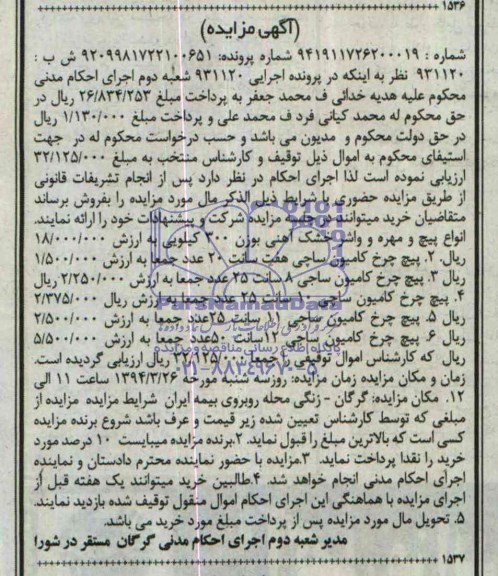 ۱۵۳۶
(آگهی مزایده)
شماره : ۹۴۱۹۱۱۷۲۶۲۰۰۰۱۹ شماره پرونده: ۹۲۰۹۹۸۱۷۲۲۱۰۰۶۵۱ ش ب :
۹۳۱۱۲۰ نظر به اینکه در پرونده اجرایی ۹۳۱۱۲۰ شعبه دوم اجرای احکام مدنی
محکوم علیه هدیه خدائی ف محمد جعفر به پرداخت مبلغ ۲۶/۸۳۴/۲۵۳ ریال در
حق محکوم له محمد کیانی فرد ف محمد علی و پرداخت مبلغ ۱/۱۳۰/۰۰۰ ریال
در حق دولت محکوم و مدیون می باشد و حسب درخواست محکوم له در جهت
استیفای محکوم به اموال ذیل توقیف و کارشناس منتخب به مبلغ ۳۲/۱۲۵/۰۰۰
ارزیابی نموده است لذا اجرای احکام در نظر دارد پس از انجام تشریفات قانونی
از طریق مزایده حضوری با شرایط ذیل الذکر مال مورد مزایده را بفروش برساند
متقاضیان خرید میتوانند در جلسه مزایده شرکت و پیشنهادات خود را ارائه نمایند.
انواع پیچ و مهره و واشر خشک آهنی بوزن ۳۰۰ کیلویی به ارزش ۱۸/۰۰۰/۰۰۰
ریال. ۲. پیچ چرخ کامیون ساچی هفت سانت ۲۰ عدد جمعا به ارزش ۱/۵۰۰/۰۰۰
ریال ۳. پیچ چرخ کامیون ساچی ۸ سانت ۲۵ عدد جمعا به ارزش ۲/۲۵۰/۰۰۰ ریال
۴. پیچ چرخ کامیون ساچی سانت ۲۵ عدد جمعا به ارزش ریال ۲/۳۷۵/۰۰۰
ریال ۵. پیچ چرخ کامیون ساچی ۱۱ سانت ۲۵عدد جمعا به ارزش ۲/۵۰۰/۰۰۰
ریال ۶. پیچ چرخ کامیون ساچی ۱۲سانت ۵۰عدد جمعا به ارزش ۵/۵۰۰/۰۰۰
ریال که کارشناس اموال توقیفی را جمعا ۳۲/۱۲۵/۰۰۰ ریال ارزیابی گردیده است.
زمان و مکان مزایده زمان مزایده: روزسه شنبه مورخه ۱۳۹۴/۳/۲۶ ساعت ۱۱ الی
۱۲. مکان مزایده: گرگان - زنگی محله روبروی بیمه ایران شرایط مزایده مزایده از
مبلغی که توسط کارشناس تعیین شده زیر قیمت و عرف باشد شروع برنده مزایده
کسی است که بالاترین مبلغ را قبول نماید. ۲.برنده مزایده میبایست ۱۰ درصد مورد
خرید را نقدا پرداخت نماید. ۳.مزایده با حضور نماینده محترم دادستان و نماینده
اجرای احکام مدنی انجام خواهد شد. ۴.طالبین خرید میتوانند یک هفته قبل از
اجرای مزایده با هماهنگی این اجرای احکام اموال منقول توقیف شده بازدید نمایند.
۵. تحویل مال مورد مزایده پس از پرداخت مبلغ مورد خرید می باشد.
مدیر شعبه دوم اجرای احکام مدنی گرگان مستقر در شورا
۱۵۳۷
ParsNamadData
پایگاه اطلاع رسانی مناقصه و مزایده
۰۲۱-۸۸۳۴۹۶۷۰-۵